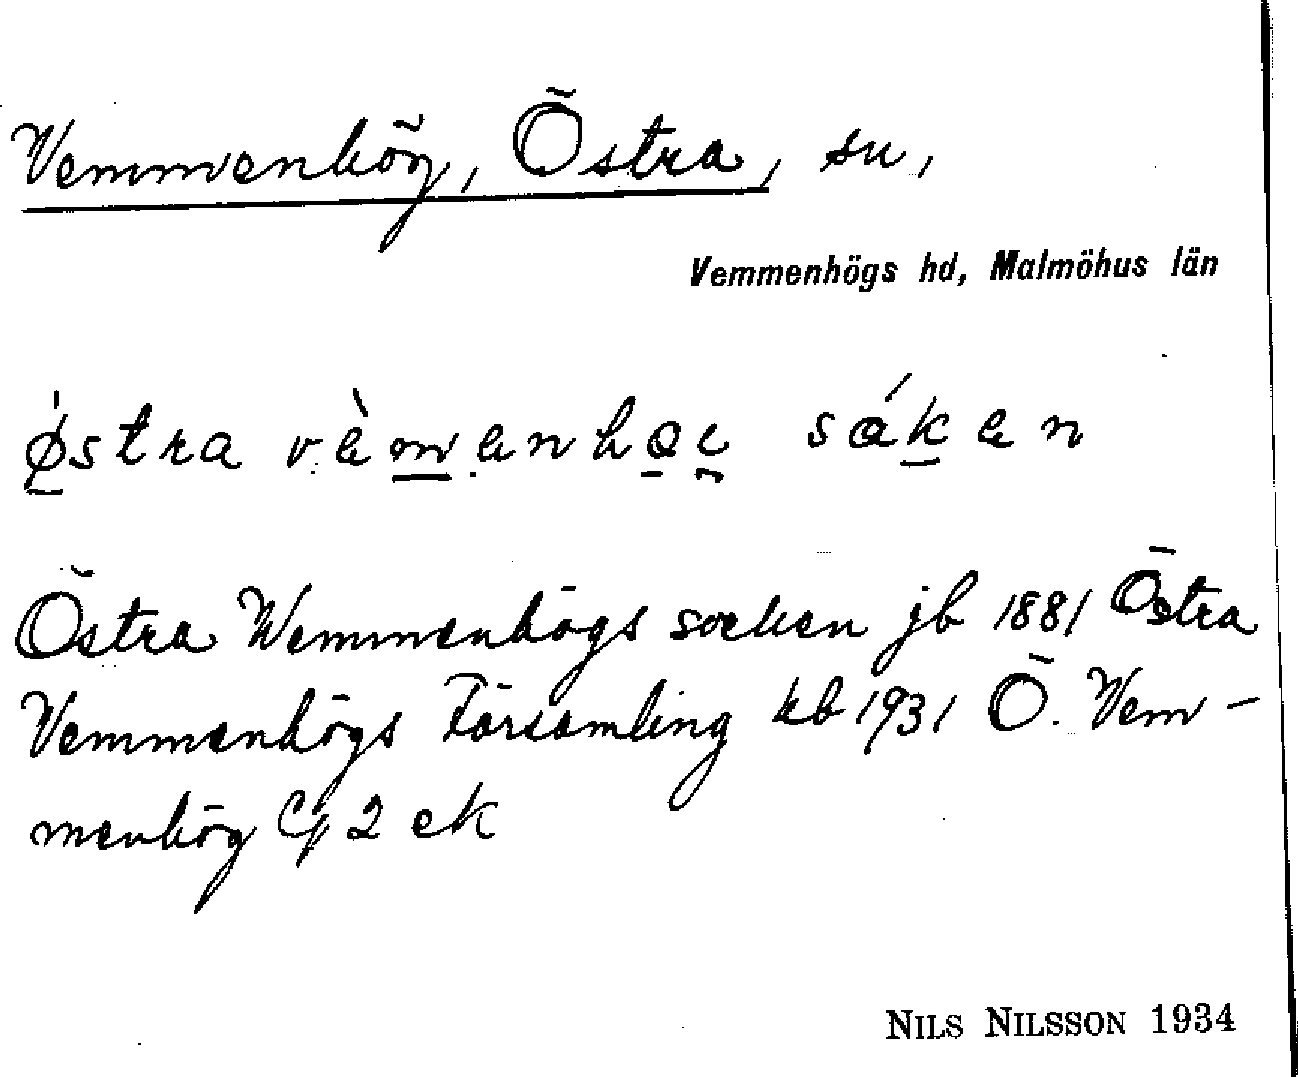 Vemmenhög, Östra, sn,
Vemmenhögs hd, Malmöhus län
østra vèmenhøi såken
Östra Wemmenhögs socken jb 1881 Östra
Vemmenhögs Församling kb 1931 Ö. Vem-
menhög G 2 ek
NILS NILSSON 1934